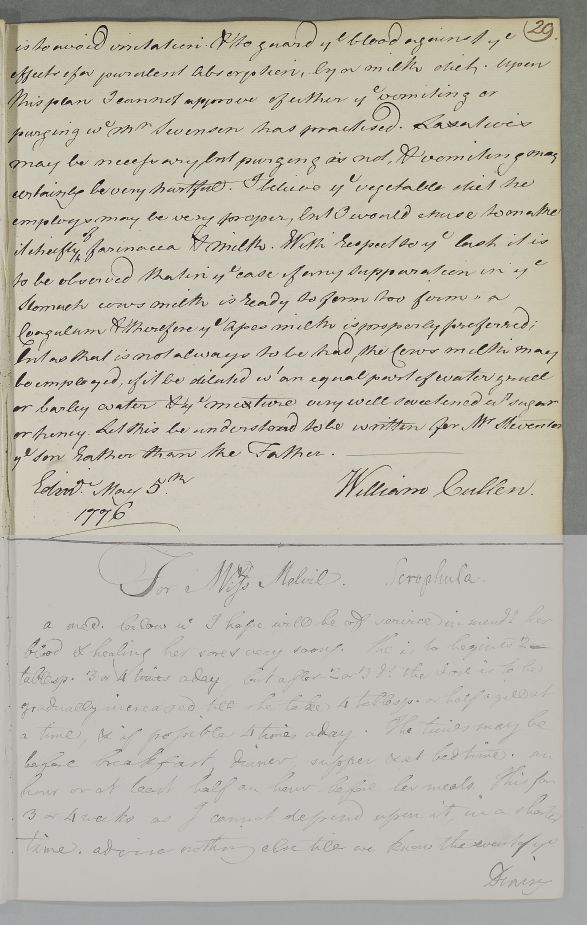 29.
is to avoid irritation. & to guard yᵉ blood against yᵉ
effects of a purulent Absorption, by a milk diet. Upon
this plan I cannot approve of either yᵉ vomiting or
purging wᶜ Mʳ Stevenson has practised. Laxatives
may be necessary but purging is not, & vomiting may
certainly be very hurtful. I believe yᵉ vegetable diet he
employs may be very proper, but I would chuse to make
it chiefly of farinacea & milk. With respect to yᵉ last it is
to be observed that in yᵉ case of any suppuration in yᵉ
Stomach cows milk is ready to form too firm a
Coagulum & therefore yᵉ Apes milk is properly preferred;
but as that is not always to be had, the Cows milk may
be employed, if it be diluted wᵗ an equal part of water gruel
or barley water & yᵉ mixture very well sweetened wᵗ sugar
or honey. Let this be understood to be written for Mʳ Stevenson
yᵉ son Rather than the Father.
Edinʳ May 5.ᵗʰ William Cullen.
1776
For Miss Melvil. Scrophula.
a med. below wᶜ I hope will be of service in mendᵍ her
blood & healing her sores very soon. She is to begin wᵗ 2
tablesp. 3 or 4 times a day, but after 2 or 3 dˢ the dose is to be
gradually increased till she take 4 tablesp. or half a gill at
a time, & if possible 4 times a day. The times may be
before breakfast, dinner, supper & at bedtime. an
hour or at least half an hour before her meals. This for
3 or 4 weeks as I cannot depend upon it, in a shorter
time. advise nothing else till we know the event of yᵉ